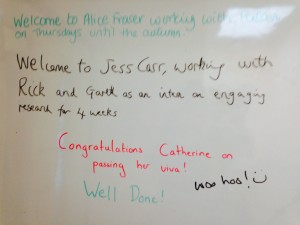 Welcome to Alice Fraser working with
on Thursdays until the autumn
Welcome to Jess Carr, working with
Rick and Gareth as an intern on engaging
research for 4 weeks
Congratulations Catherine on
passing her viva!
Well Done!
woo hoo!